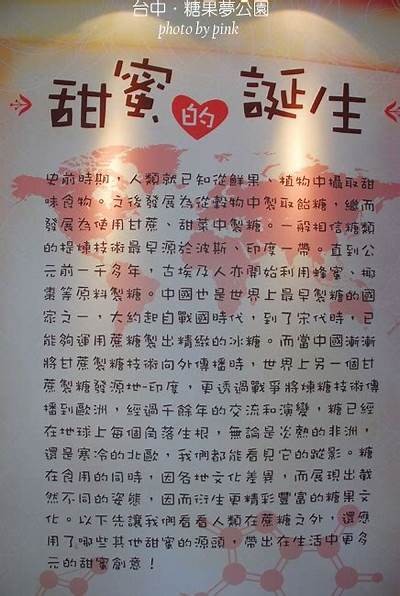 台中・糖果夢公園
photo by pink
甜蜜的誕生
史前時期，人類就已知從鮮果、植物中攝取甜
味食物。之後發展為從穀物中製取飴糖，繼而
發展為使用甘蔗、甜菜中製糖。一般相信糖類
的提煉技術最早源於波斯、印度一帶。直到公
元前一千多年，古埃及人亦開始利用蜂蜜、椰
棗等原料製糖。中國也是世界上最早製糖的國
家之一，大約起自戰國時代，到了宋代時，已
能夠運用蔗糖製出精緻的冰糖。而當中國漸漸
將甘蔗製糖技術向外傳播時，世界上另一個甘
蔗製糖發源地-印度，更透過戰爭將煉糖技術傳
播到歐洲，經過千餘年的交流和演變，糖已經
在地球上每個角落生根，無論是炎熱的非洲，
還是寒冷的北歐，我們都能看見它的蹤影。糖
在食用的同時，因各地文化差異，而展現出截
然不同的姿態，因而衍生更精彩豐富的糖果文
化。以下先讓我們看看人類在蔗糖之外，還應
用了哪些其他甜蜜的源頭，帶出在生活中更多
元的甜蜜創意！